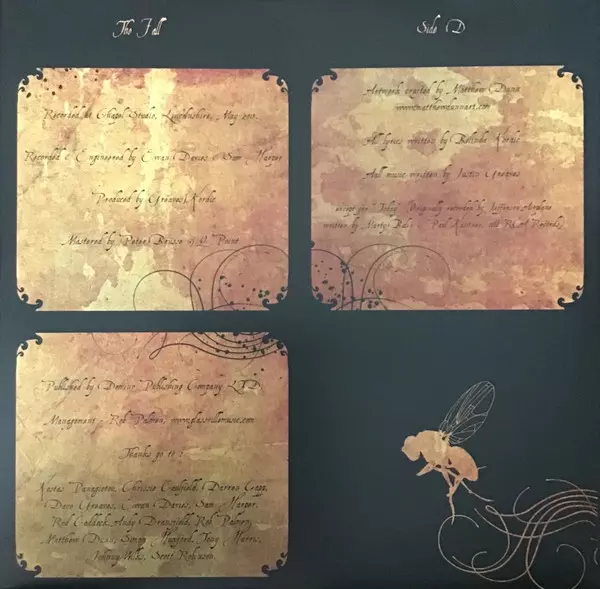 The Fall
Side D
Recorded at Chapel Studio, Lincolnshire, May 2011.
Recorded & Engineered by Ewan Davies & Sam Harper
Produced by Greaves/Nordic
Mastered by Peter Point
Artwork crafted by Matthew Dunn
www.matthewdunnart.com
All lyrics written by Belinda Kordic
All music written by Justin Greaves
except for "Today" Originally recorded by Jefferson Airplane
written by Martyn Balin & Paul Kantner, 1967 RCA Records
Published by Domino Publishing Company LTD
Management - Rob Palmer, www.glassvillemusic.com
Thanks go to :
Kostas Panagiotou, Chrissie Caulfield, Darren Cope,
Dave Greaves, Ewan Davies, Sam Harper,
Rod Caddock, Andy Dransfield, Rob Palmer,
Matthew Dunn, Simon Tony Harris,
Johnny Wilks, Scott Robinson.